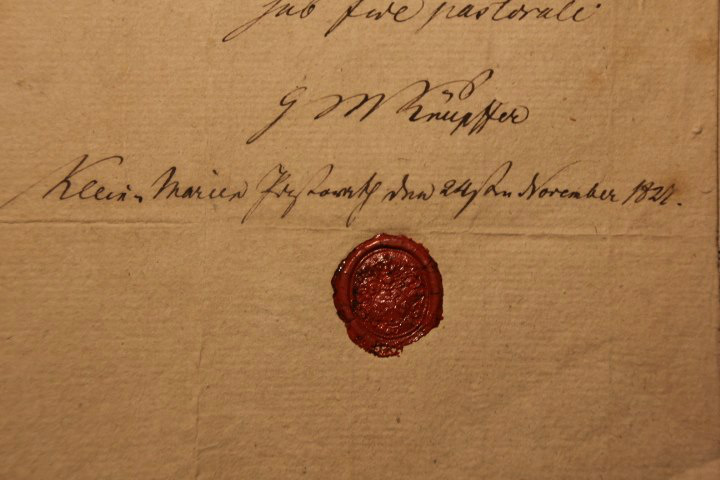 sub fide pastorali
G M Knüpffer
Klein-Marien Pastorath den 24sten November 1821.